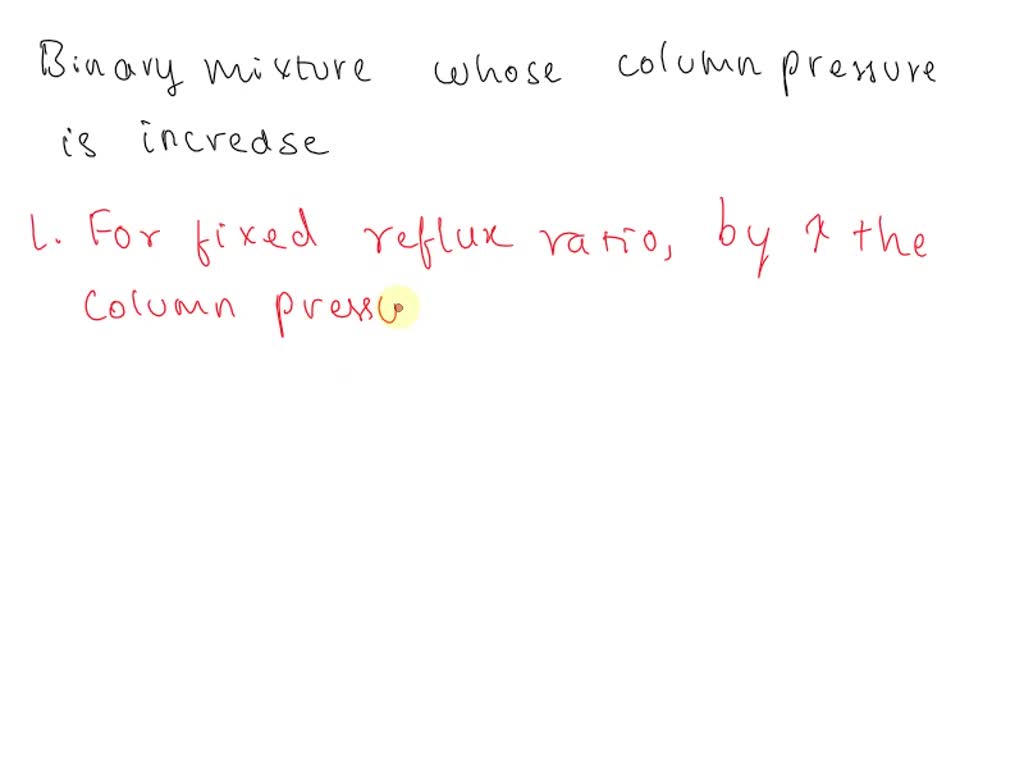 Binary mixture whose column pressure
is increase
1. For fixed reflux ratio, by ↑ the
column pressu